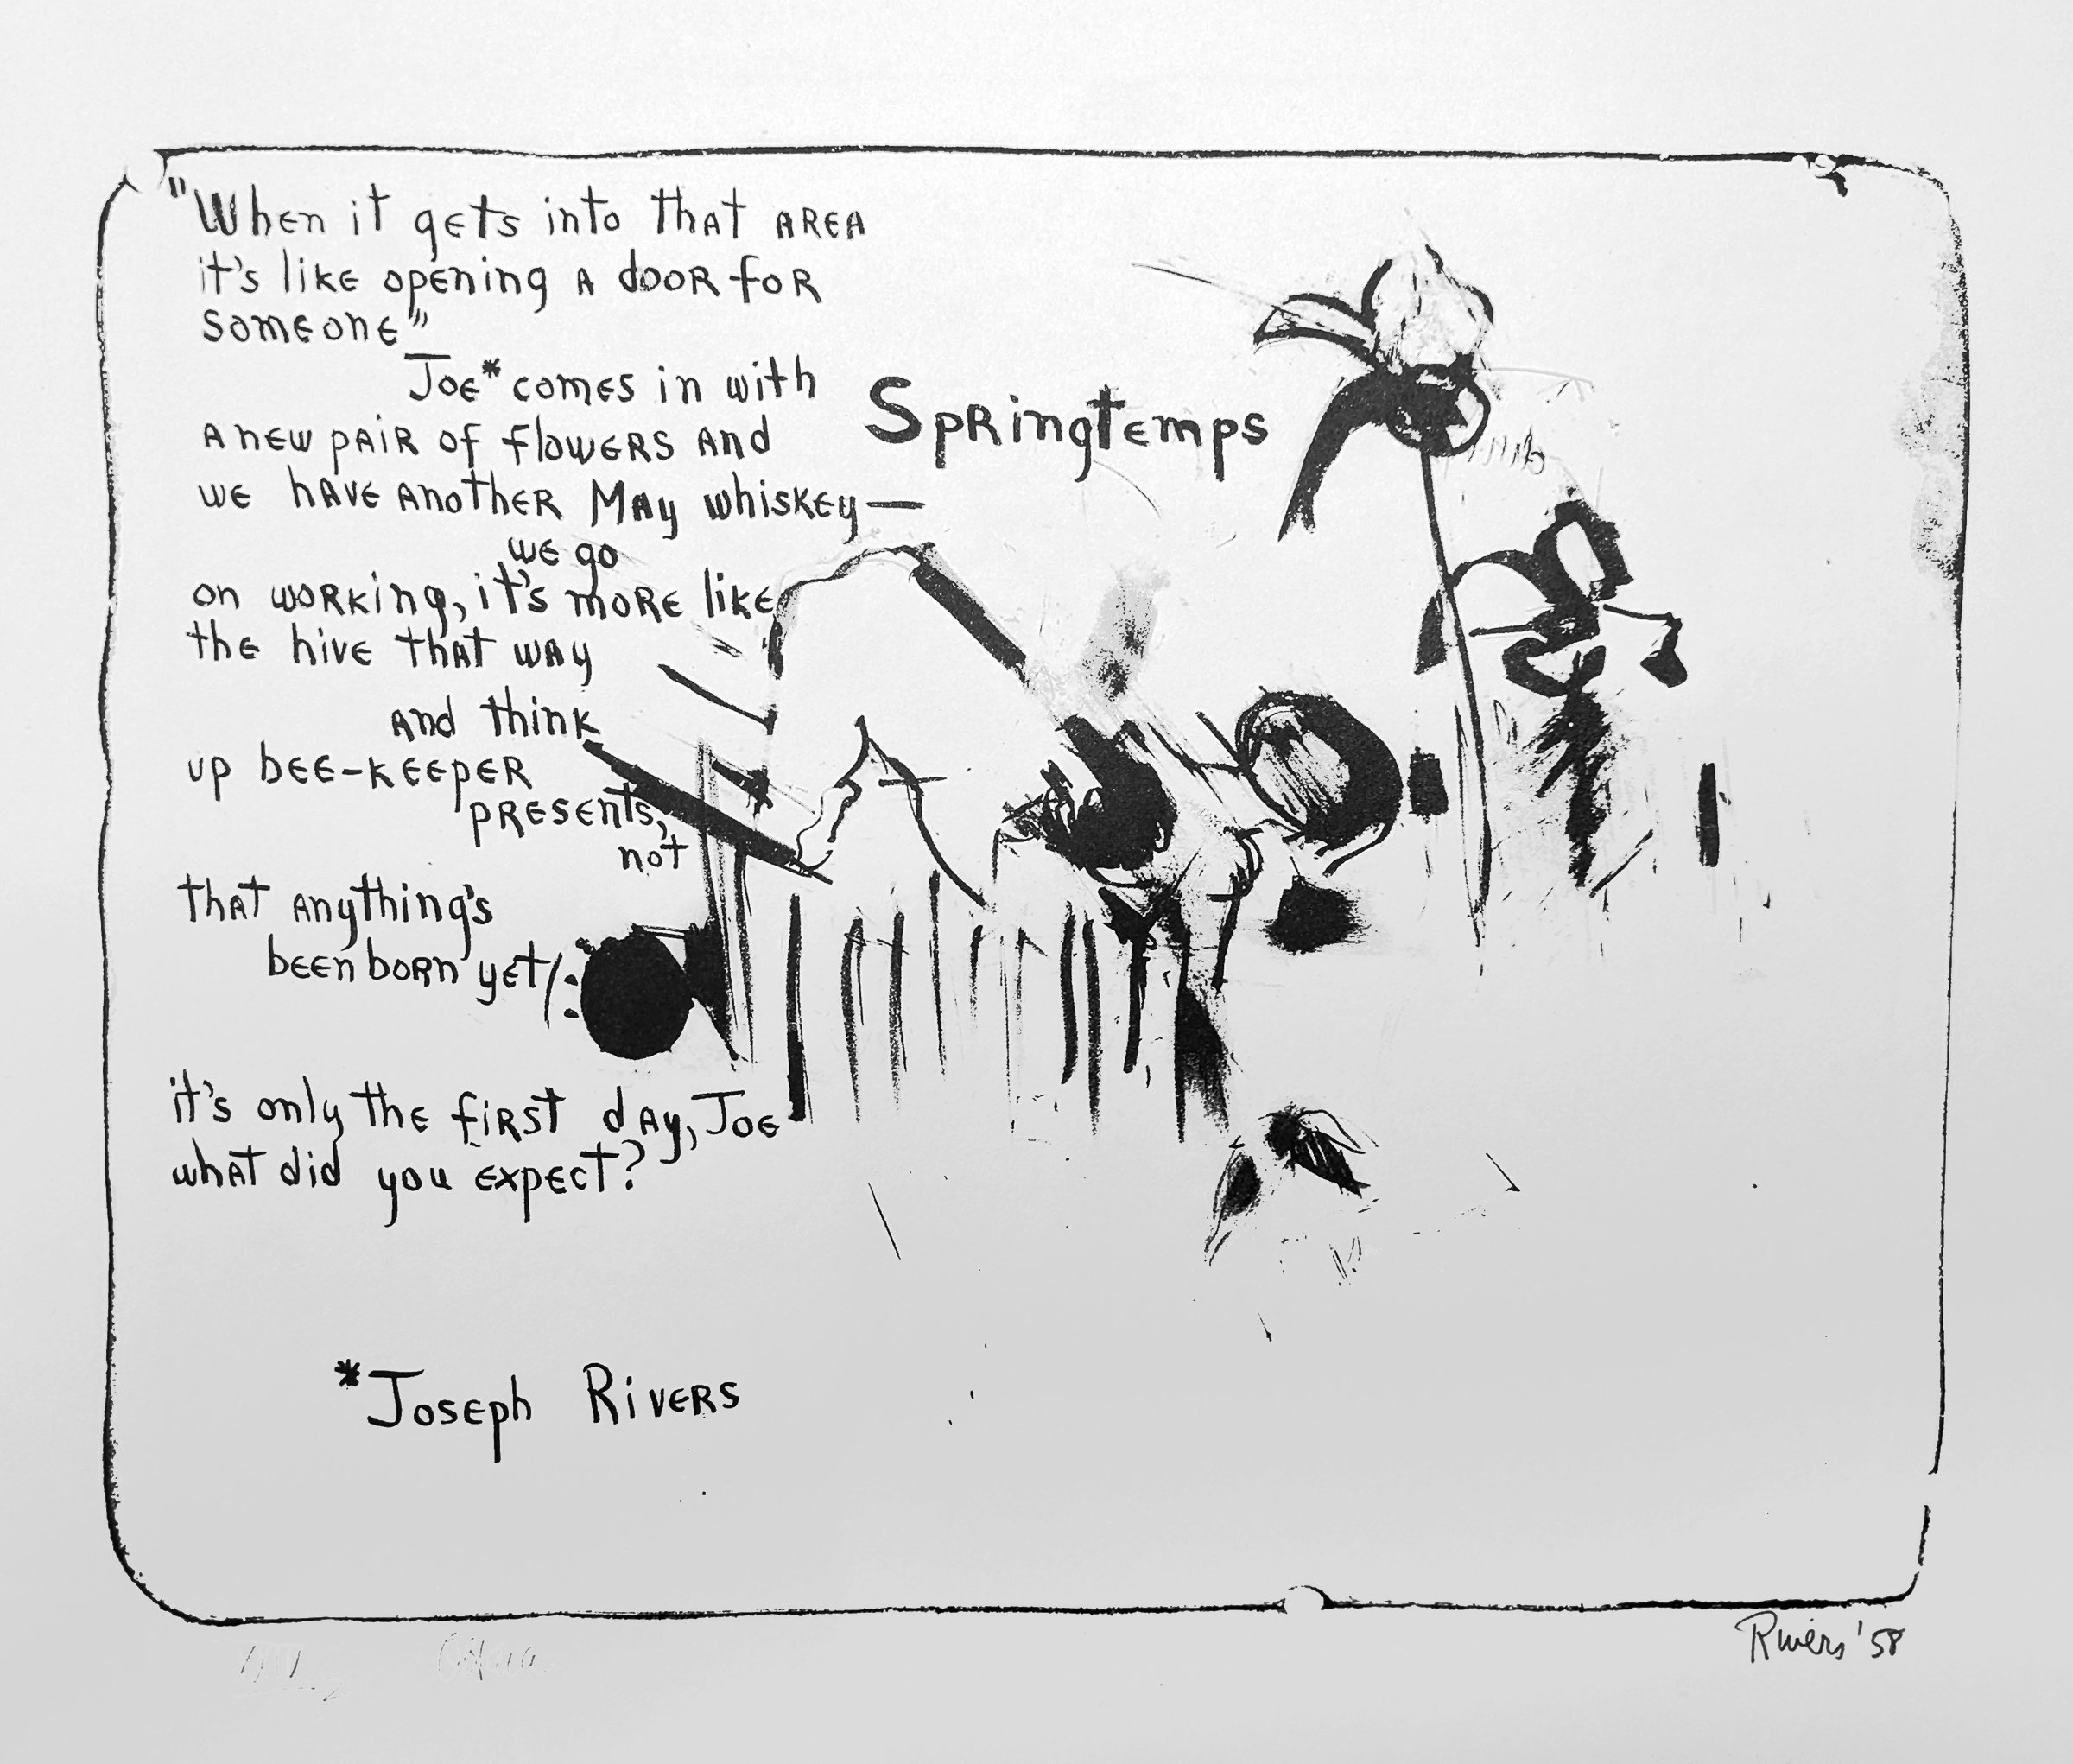 "When it gets into that area
it's like opening a door for
someone"
Joe* comes in with
a new pair of flowers and
we have another May whiskey—
we go
on working, it's more like
the hive that way
and think
up bee-keeper
presents,
not
that anything's
been born yet/:
it's only the first day, Joe
what did you expect?
Springtemps
*Joseph Rivers
Rivers '58